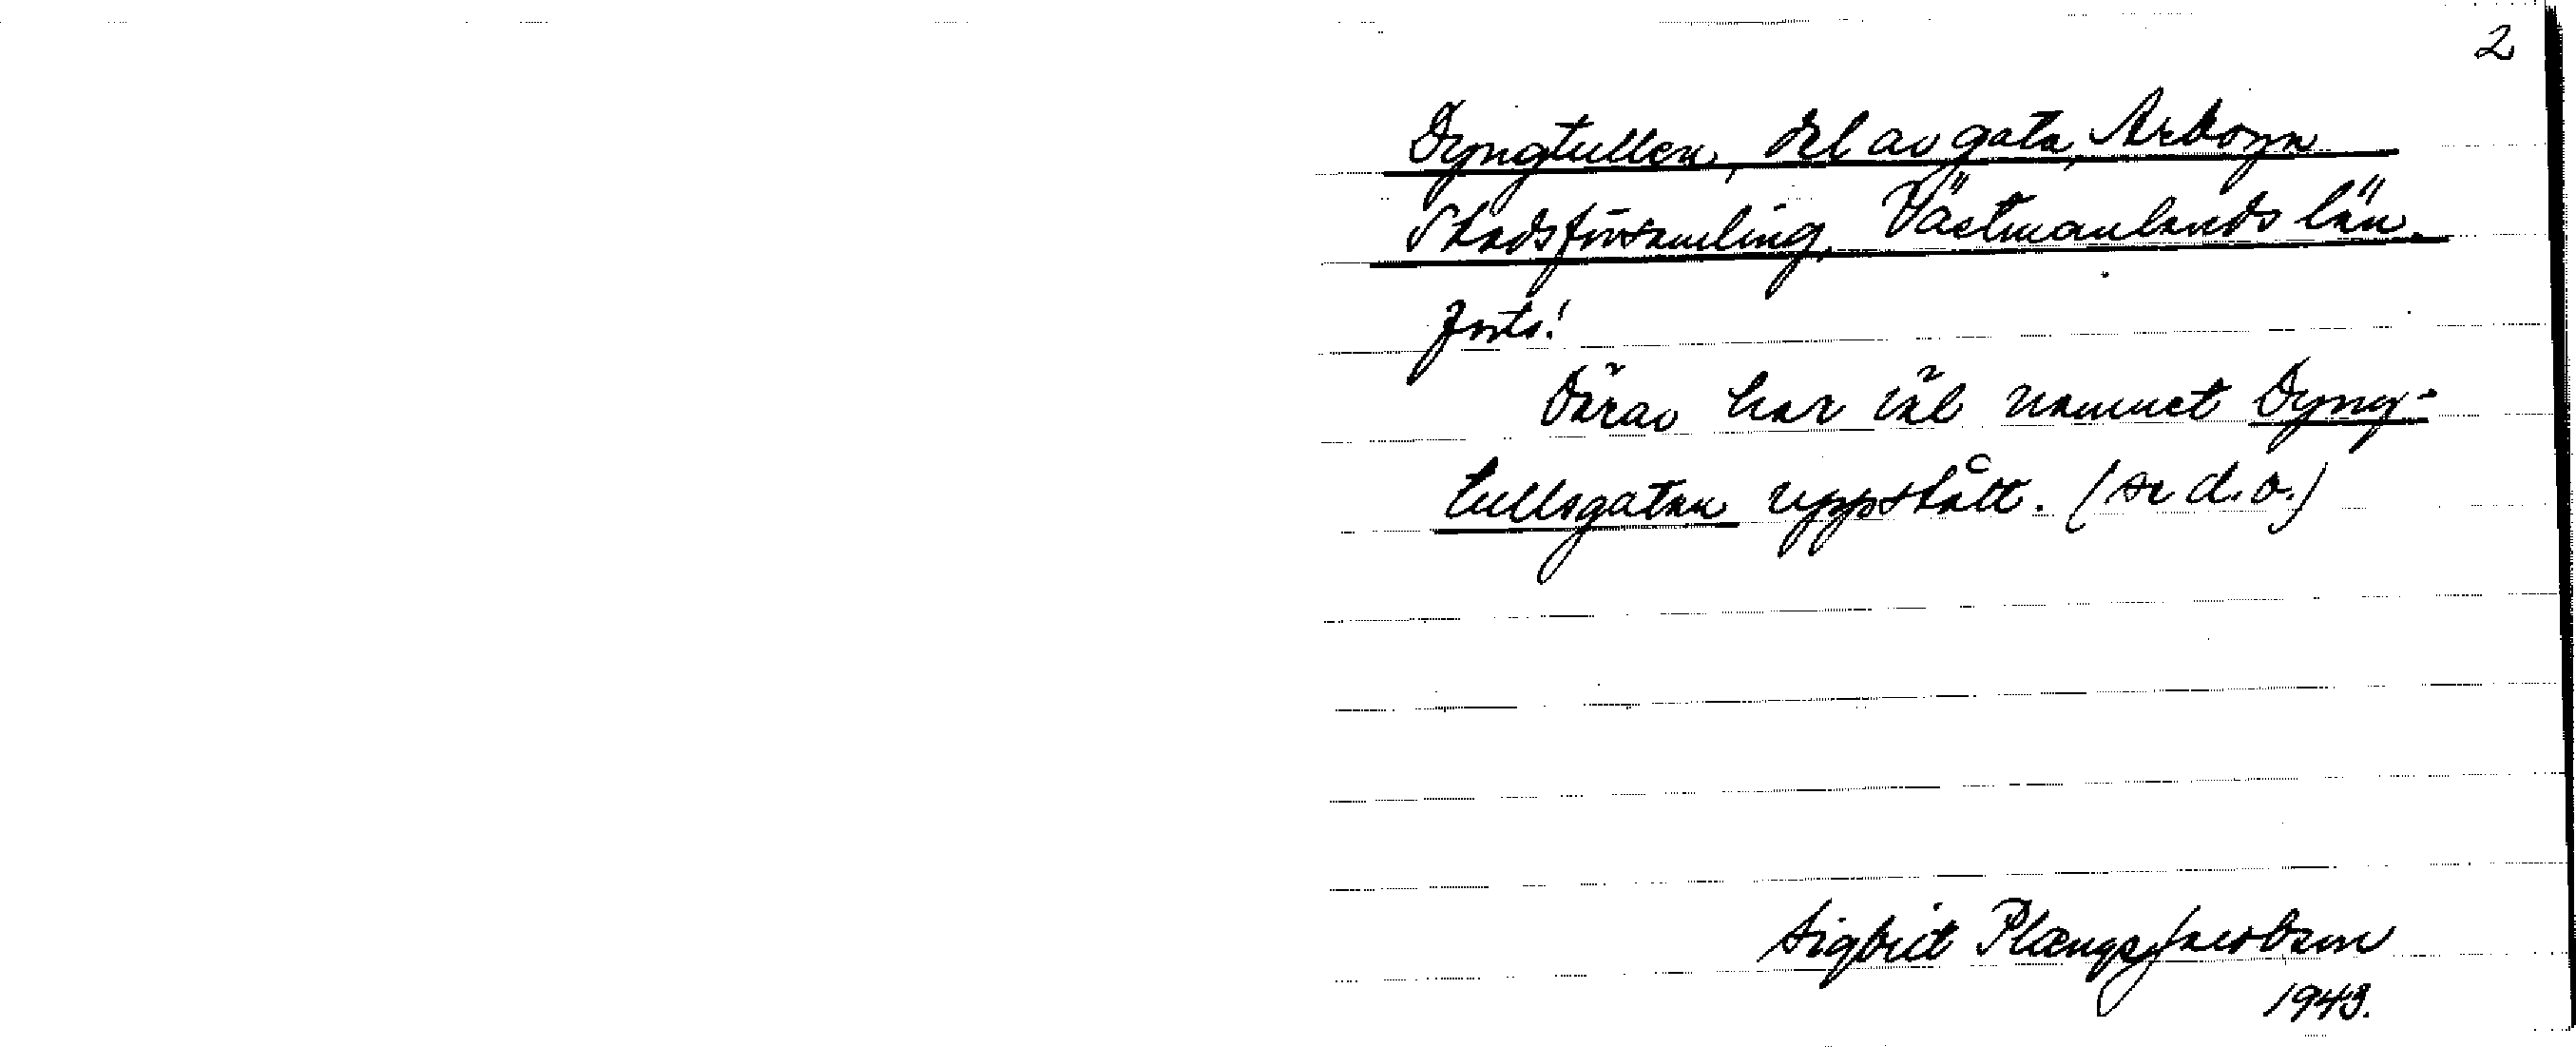 2
Dyngtullen, del av gata, Arboga
Stadsförsamling, Västmanlands län.
Forts!
Därav har väl namnet Dyng-
tullsgatan uppstått. (se d.o.)
Sigbrit Plænge Jacobson
1943.